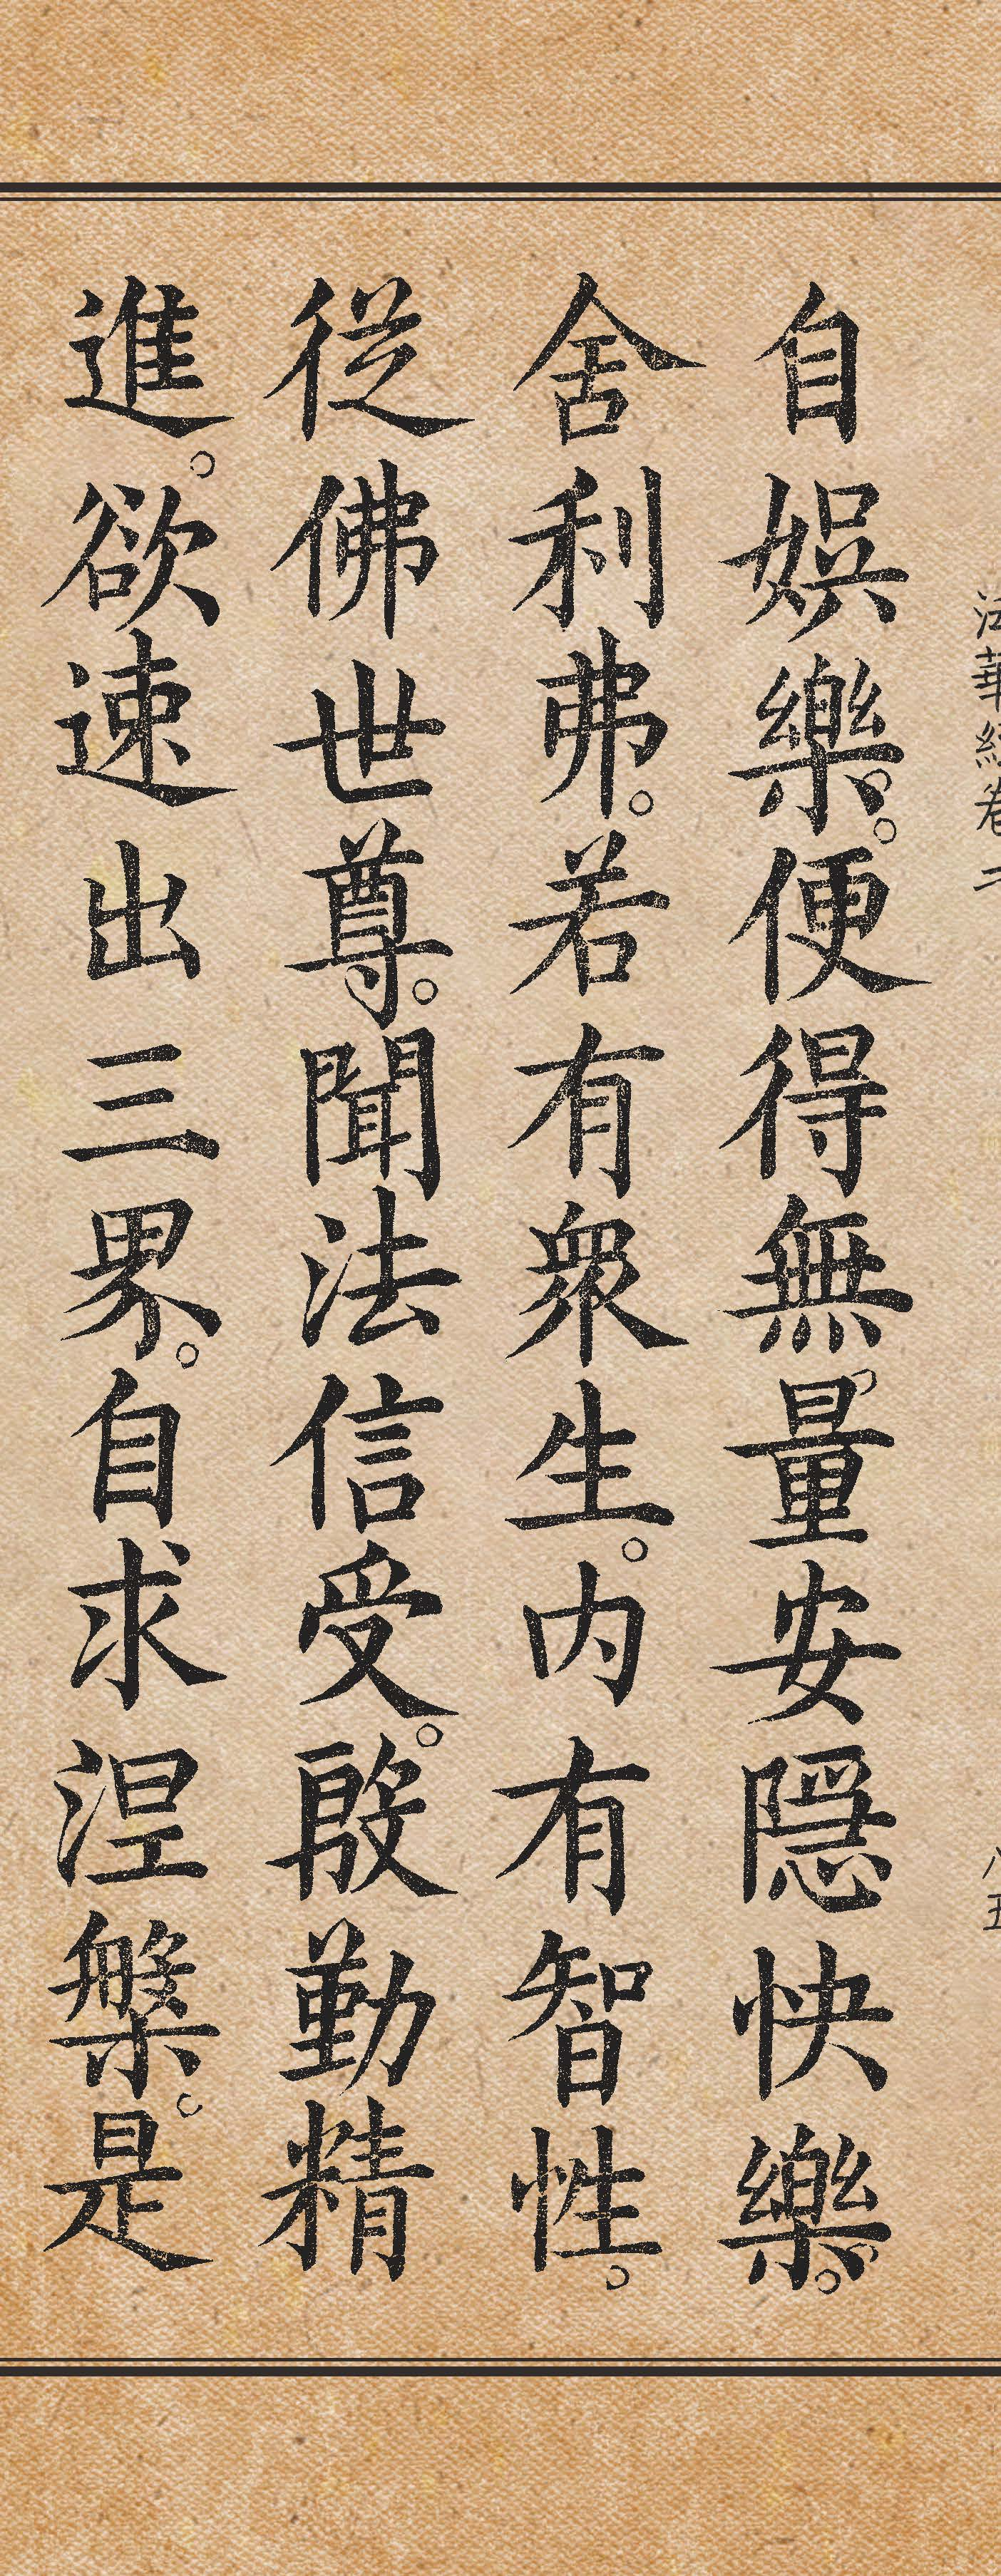 法華經卷二
八五
自娛樂。便得無量安隱快樂。
舍利弗。若有衆生。内有智性。
從佛世尊。聞法信受。殷勤精
進。欲速出三界。自求涅槃。是